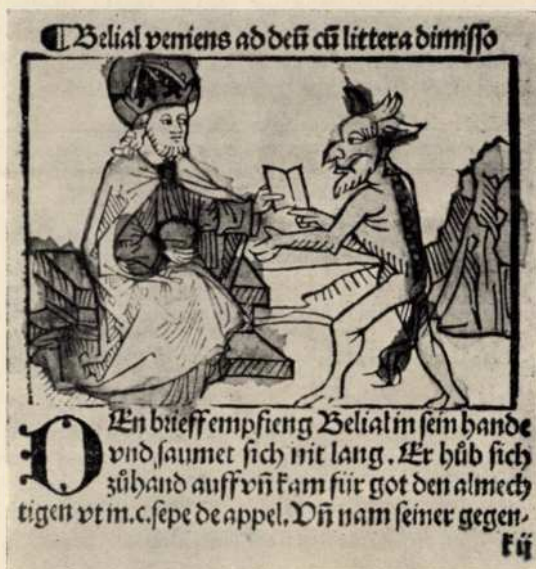 ❡ Belial veniens ad deū cū littera dimisso
DEn brieff empfieng Belial in sein hande
vnd saumet sich nit lang. Er hůb sich
zůhand auff vn̄ kam für got den almech
tigen vt m.c.sepe de appel. Vn̄ nam seiner gegen-
k ij